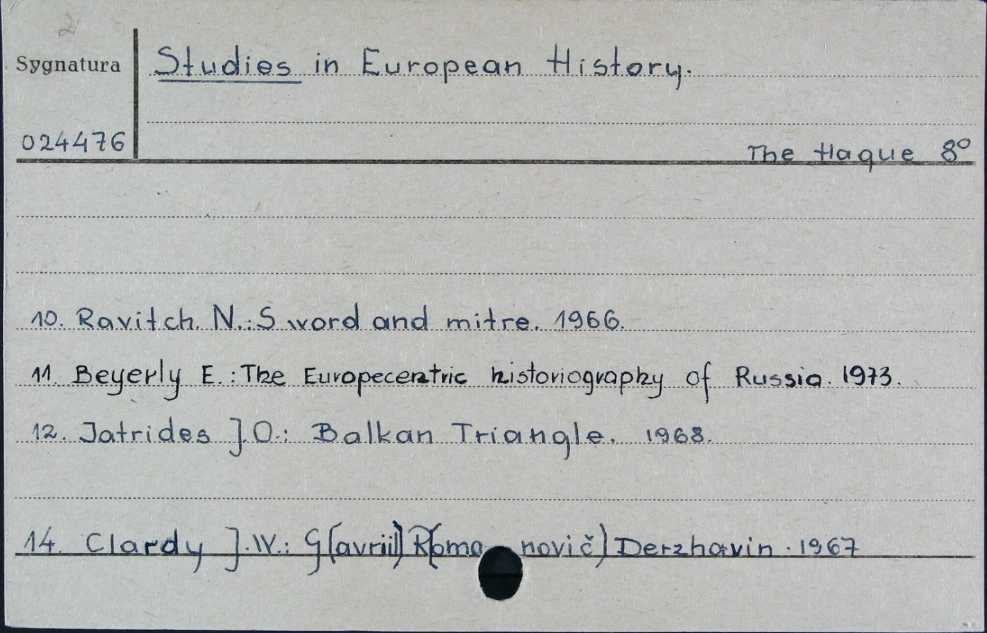 Sygnatura
Studies in European History.
024476
The Hague 8°
10. Ravitch. N.: Sword and mitre. 1966.
11 Beyerly E.: The Europecentric historiography of Russia. 1973.
12. Jatrides J.O.: Balkan Triangle. 1968.
14. Clardy J.W.: G(avriil) R(omanovič) Derzhavin. 1967